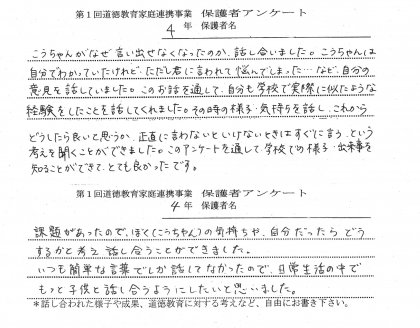 第1回道徳教育家庭連携事業 保護者アンケート
4年 保護者名
こうちゃんがなぜ言い出せなくなったのか、話し合いました。こうちゃんは
自分でわかっていたけれど、ただし君に言われて悩んでしまった…など、自分の
意見を話していました。このお話を通して、自分も学校で実際に似たような
経験をしたことを話してくれました。その時の様子・気持ちを話し、これから
どうしたら良いと思うか、正直に言わないといけないときはすぐに言う、という
考えを聞くことができました。このアンケートを通して、学校での様子・出来事を
知ることができて、とても良かったです。
第1回道徳教育家庭連携事業 保護者アンケート
4年 保護者名
課題があったので、ぼく(こうちゃん)の気持ちや、自分だったらどう
するかと考え話し合うことができました。
いつも簡単な言葉でしか話してなかったので、日常生活の中で
もっと子供と話し合うようにしたいと思いました。
*話し合われた様子や成果、道徳教育に対する考えなど、自由にお書き下さい。